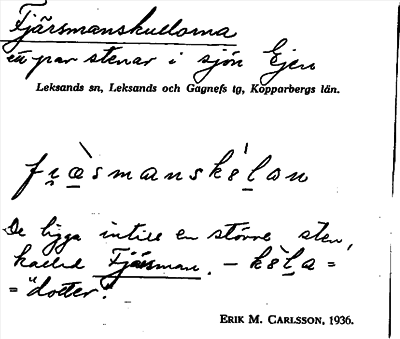 Fjärsmanskullorna
ett par stenar i sjön Ejen
Leksands sn, Leksands och Gagnefs tg, Kopparbergs län.
fɪ̯a̱̓smanskèlan
De ligga intill en större sten,
kallad Fjärsman. – kèl̠a =
= "dotter".
ERIK M. CARLSSON, 1936.